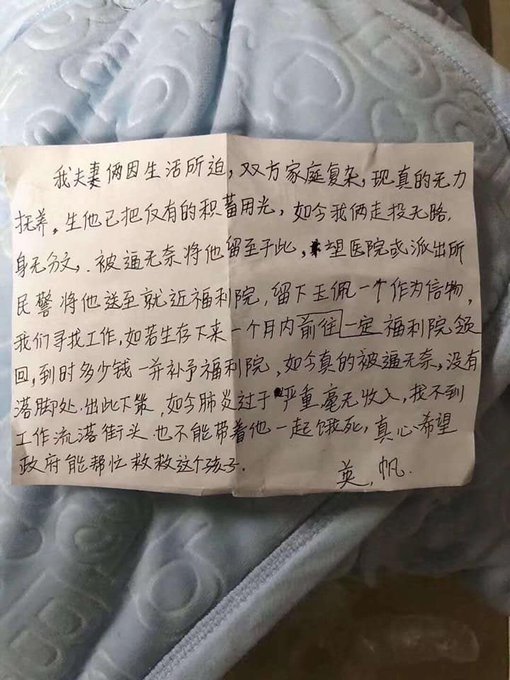 我夫妻俩因生活所迫，双方家庭复杂，现真的无力
抚养。生他已把仅有的积蓄用光，如今我俩走投无路，
身无分文，被逼无奈将他留至于此，望医院或派出所
民警将他送至就近福利院，留下玉佩一个作为信物，
我们寻找工作，如若生存下来一个月内前往一定福利院领
回，到时多少钱一并补予福利院，如今真的被逼无奈，没有
落脚处.出此下策，如今肺炎过于严重毫无收入，找不到
工作流落街头.也不能带着他一起饿死，真心希望
政府能帮忙救救这个孩子.
英.帆.